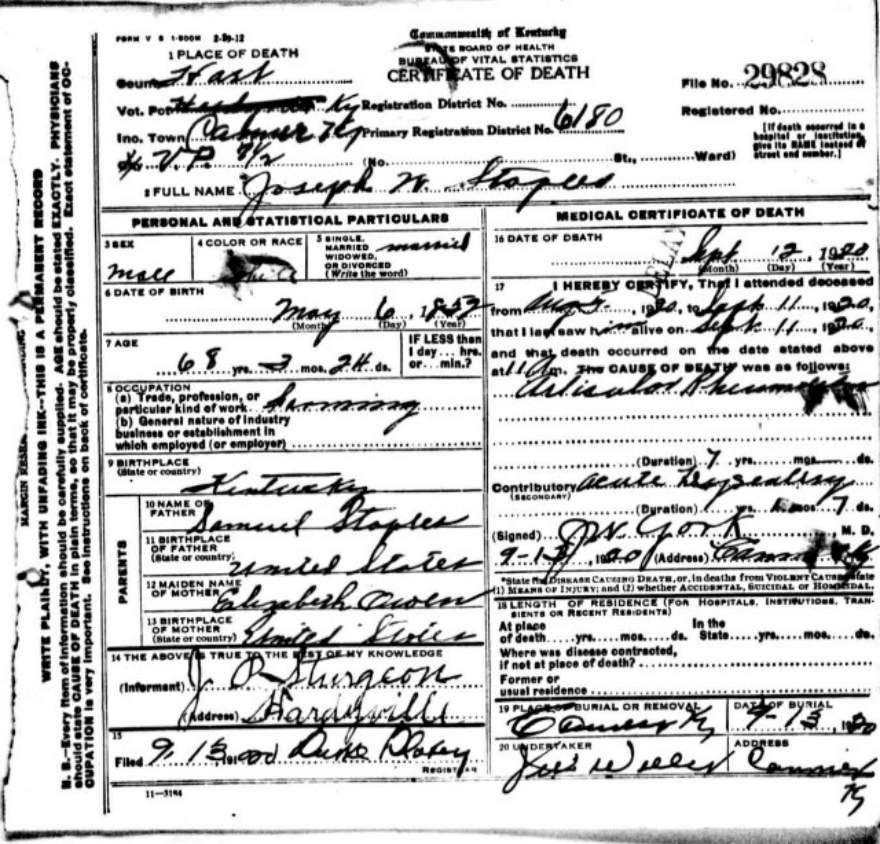 FORM V S 1-500M 2-29-12
Commonwealth of Kentucky
STATE BOARD OF HEALTH
BUREAU OF VITAL STATISTICS
CERTIFICATE OF DEATH
1 PLACE OF DEATH
County Hart
File No. 29828
Vot. Pct Ky Registration District No.
Registered No.
Inc. Town Ky Primary Registration District No. 6180
[If death occurred in a hospital or institution, give its NAME instead of street and number.]
(No. St., Ward)
2 FULL NAME Joseph W. Staples
PERSONAL AND STATISTICAL PARTICULARS
3 SEX
Male
4 COLOR OR RACE
5 SINGLE, MARRIED WIDOWED, OR DIVORCED (Write the word) married
6 DATE OF BIRTH
May 6, 1852
(Month) (Day) (Year)
7 AGE
68 yrs. 3 mos. 24 ds.
IF LESS than 1 day... hrs. or... min.?
8 OCCUPATION
(a) Trade, profession, or
particular kind of work Farming
(b) General nature of industry
business or establishment in
which employed (or employer)
9 BIRTHPLACE
(State or country)
Kentucky
PARENTS
10 NAME OF FATHER
Samuel Staples
11 BIRTHPLACE OF FATHER
(State or country)
United States
12 MAIDEN NAME OF MOTHER
Elizabeth Owen
13 BIRTHPLACE OF MOTHER
(State or country) United States
14 THE ABOVE IS TRUE TO THE BEST OF MY KNOWLEDGE
(Informant) J. P. Sturgeon
(Address) Hardyville
15
Filed 9-13, 19
REGISTRAR
11-3184
MEDICAL CERTIFICATE OF DEATH
16 DATE OF DEATH
Sept. 12, 1920
(Month) (Day) (Year)
17 I HEREBY CERTIFY, That I attended deceased
from Aug, 1920, to Sept 11, 1920,
that I last saw him alive on Sept. 11, 1920,
and that death occurred on the date stated above
at 11 m. The CAUSE OF DEATH was as follows:
(Duration) 7 yrs. mos. ds.
Contributory acute
(SECONDARY)
(Duration) yrs. mos. 7 ds.
(Signed) J W York M. D.
9-13, 1920 (Address)
*State the DISEASE CAUSING DEATH, or, in deaths from VIOLENT CAUSES state
(1) MEANS OF INJURY; and (2) whether ACCIDENTAL, SUICIDAL OR HOMICIDAL.
18 LENGTH OF RESIDENCE (FOR HOSPITALS, INSTITUTIONS, TRANSIENTS OR RECENT RESIDENTS)
At place of death yrs. mos. ds. In the State yrs. mos. ds.
Where was disease contracted,
if not at place of death?
Former or
usual residence
19 PLACE OF BURIAL OR REMOVAL
Canmer Ky
DATE OF BURIAL
9-13, 1920
20 UNDERTAKER
ADDRESS
Canmer
Ky
MARGIN RESERVED FOR BINDING
WRITE PLAINLY, WITH UNFADING INK--THIS IS A PERMANENT RECORD
N. B.--Every item of information should be carefully supplied. AGE should be stated EXACTLY. PHYSICIANS
should state CAUSE OF DEATH in plain terms, so that it may be properly classified. Exact statement of OC-
CUPATION is very important. See instructions on back of certificate.